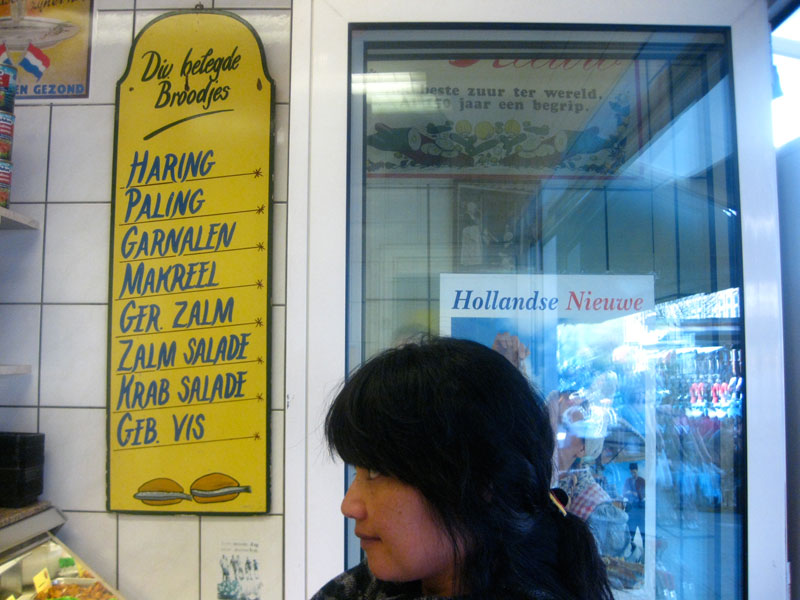 EN GEZOND
Div belegde
Broodjes
HARING
PALING
GARNALEN
MAKREEL
GER. ZALM
ZALM SALADE
KRAB SALADE
GEB. VIS
beste zuur ter wereld.
jaar een begrip.
Hollandse Nieuwe